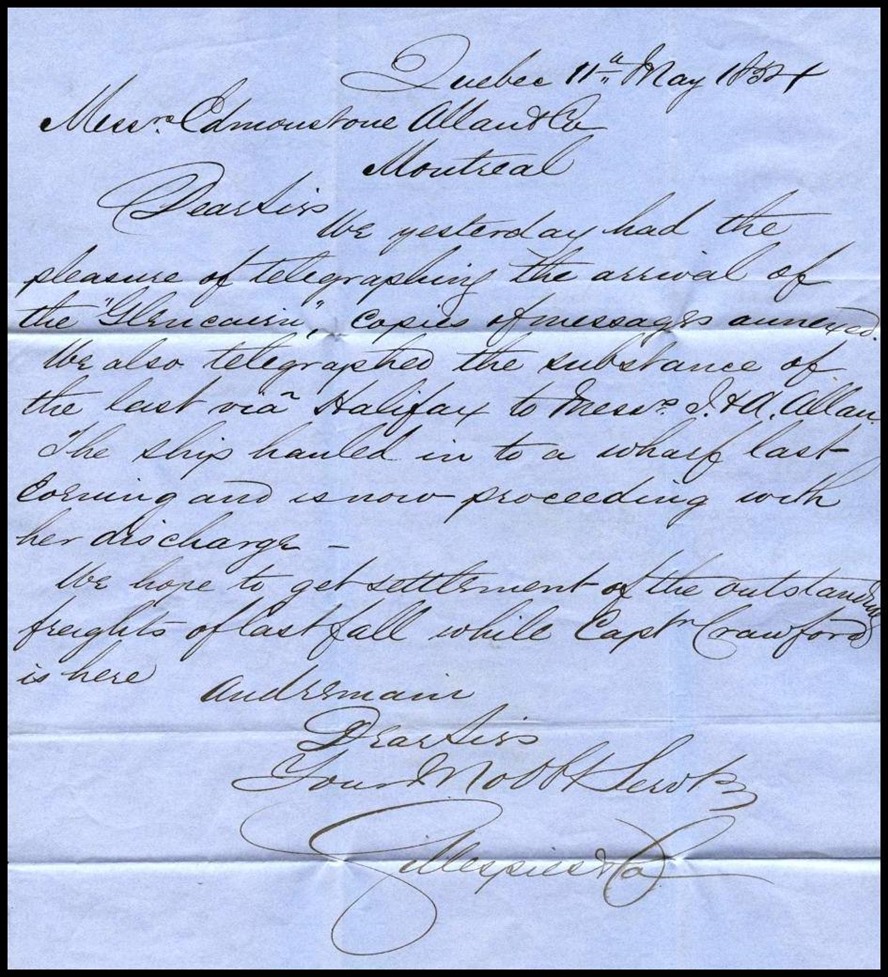 Quebec 11th May 1854
Messrs Edmonstone Allan & Co
Montreal
Dear Sirs
We yesterday had the
pleasure of telegraphing the arrival of
the "Glencairn", copies of messages annexed.
We also telegraphed the substance of
the last viâ Halifax to Messrs J. & A. Allan.
The ship hauled in to a wharf last
Evening and is now proceeding with
her discharge –
We hope to get settlement of the outstanding
freights of last fall while Captn Crawford
is here
And remain
Dear Sirs
Your Mo Obt Servts
Gillespies & Co